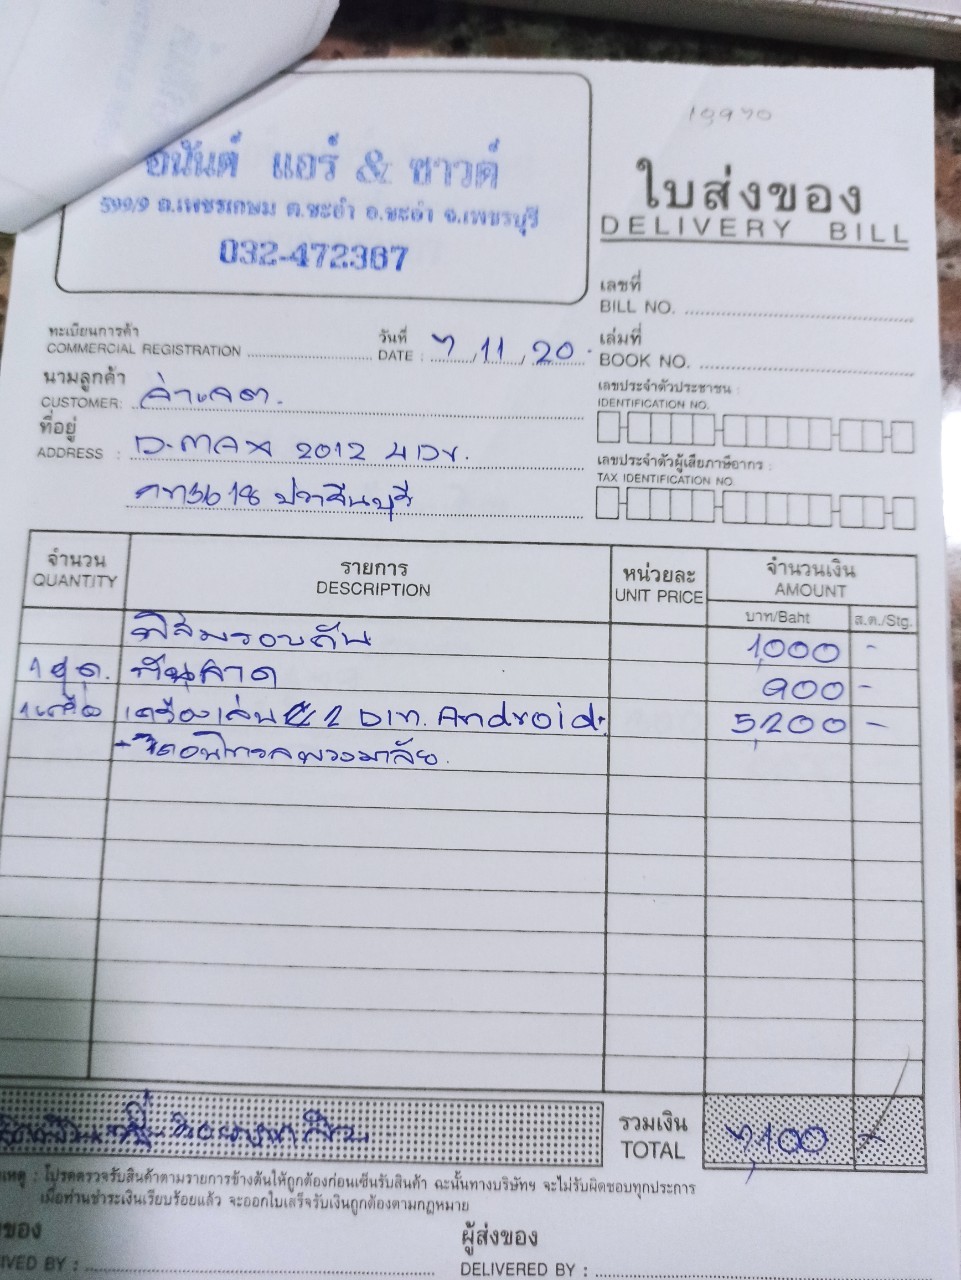 19970
อนันต์ แอร์ & ซาวด์
599/9 ถ.เพชรเกษม ต.ชะอำ อ.ชะอำ จ.เพชรบุรี
032-472367
ใบส่งของ
DELIVERY BILL
เลขที่
BILL NO.
ทะเบียนการค้า
COMMERCIAL REGISTRATION
วันที่
DATE : 7/11/20
เล่มที่
BOOK NO.
นามลูกค้า
CUSTOMER: จ่าเจต.
เลขประจำตัวประชาชน :
IDENTIFICATION NO.
ที่อยู่
ADDRESS : D-MAX 2012 4 ปร.
ปราจีนบุรี
เลขประจำตัวผู้เสียภาษีอากร :
TAX IDENTIFICATION NO.
จำนวน
QUANTITY
รายการ
DESCRIPTION
หน่วยละ
UNIT PRICE
จำนวนเงิน
AMOUNT
บาท/Baht
ส.ต./Stg.
ฟิล์มรอบคัน 1,000 -
1 ชุด. กันสาด 900 -
1 เครื่อง เครื่องเล่น 2 Din. Android. 5,200 -
คอนโทรลพวงมาลัย.
รวมเงิน
TOTAL
7,100 -
เหตุ : โปรดตรวจรับสินค้าตามรายการข้างต้นให้ถูกต้องก่อนเซ็นรับสินค้า ฉะนั้นทางบริษัทฯ จะไม่รับผิดชอบทุกประการ
เมื่อท่านชำระเงินเรียบร้อยแล้ว จะออกใบเสร็จรับเงินถูกต้องตามกฎหมาย
ของ
IVED BY :
ผู้ส่งของ
DELIVERED BY :